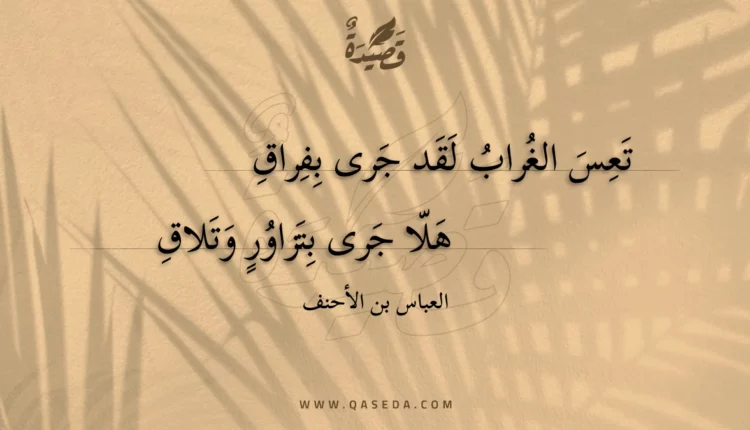 قَصِيدَةٌ
تَعِسَ الغُرابُ لَقَد جَرى بِفِراقِ
هَلّا جَرى بِتَزاوُرٍ وَتَلاقِ
العباس بن الأحنف
WWW.QASEDA.COM